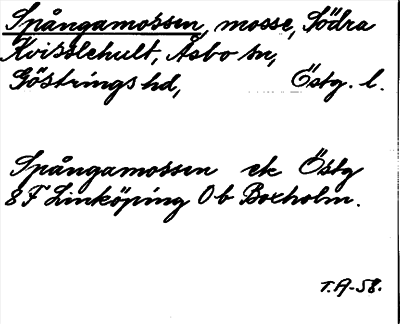 Spångamossen, mosse, Södra
Kvisslehult, Åsbo sn,
Göstrings hd, Östg. l.
Spångamossen ek Östg
8 F Linköping 0b Boxholm.
T.A-58.